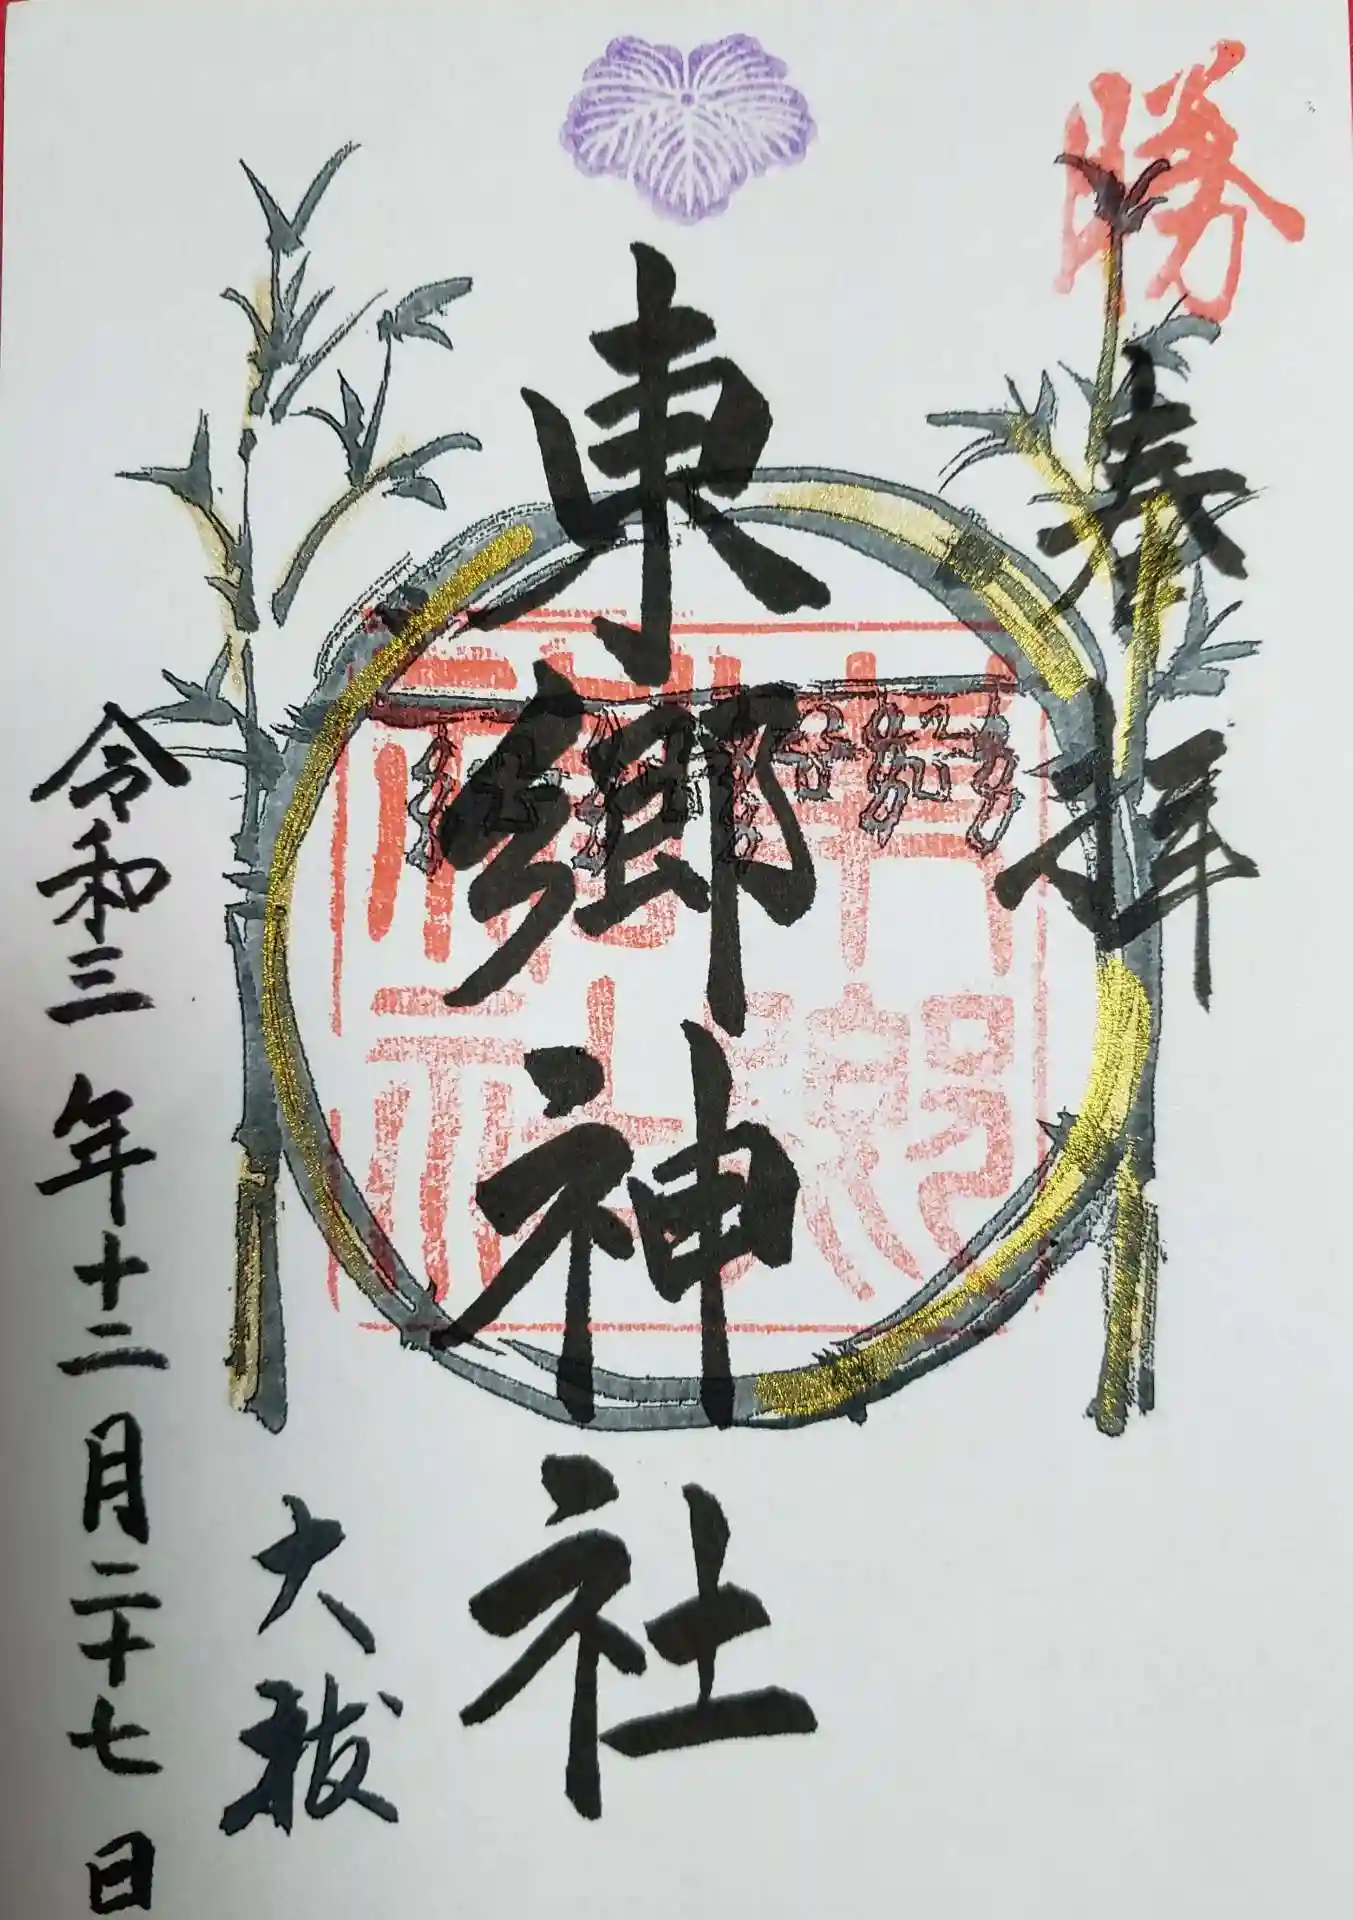 勝
奉拝
東郷神社
東郷神社
大祓
令和三年十二月二十七日